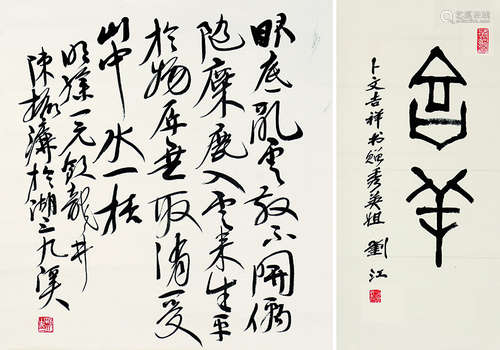 眼底亂雲散不開偶
隨麋鹿入雲來生平
於物原無取消受
山中水一杯
明孫一元飲龍井
陳振濂於湖上九溪
吉羊
卜文吉祥书贈秀英姐 劉江